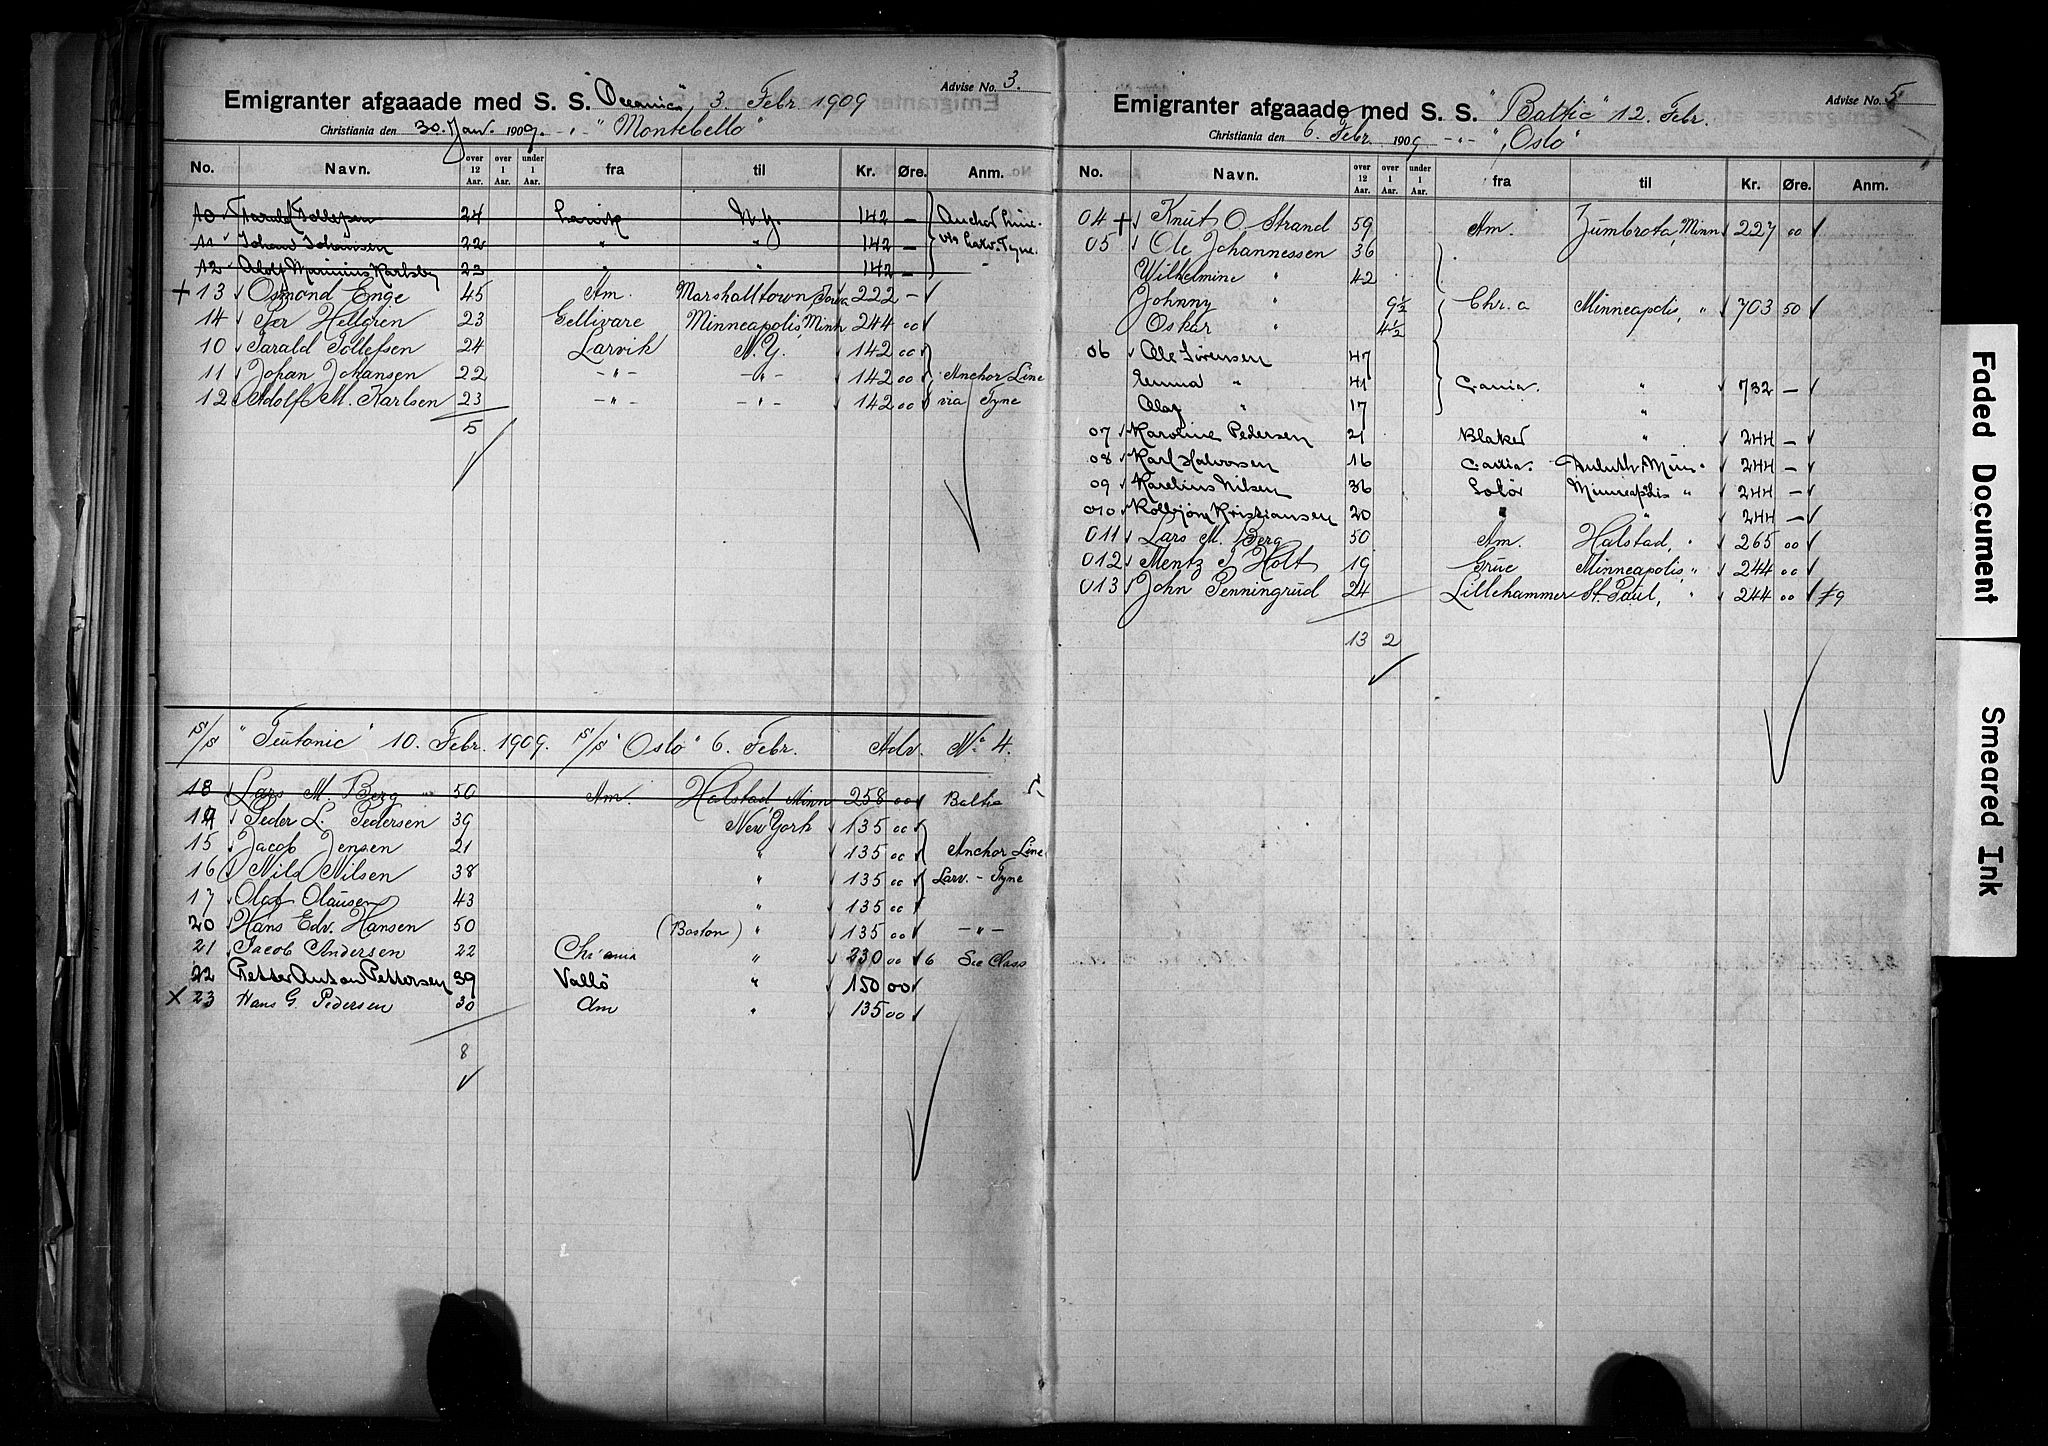 Advise No. 3.
Emigranter afgaaade med S. S. "Oceanic", 3. Febr. 1909
Christiania den 30. Jan. 1909. - " - "Montebello"
No. Navn. over 12 Aar. over 1 Aar. under 1 Aar. fra til Kr. Øre. Anm.
10 Tarald Tollefsen 24 Larvik N.Y. 142 - Anchor Line
11 Johan Johansen 22 " " 142 - via Larv. Tyne.
12 Adolf Marinius Karlsby 23 " " 142 -
+ 13 Osmond Enge 45 Am. Marshalltown, Iowa 222 -
14 Per Hellgren 23 Gellivare Minneapolis, Minn 244 00
10 Tarald Tollefsen 24 Larvik N.Y. 142 00
11 Johan Johansen 22 - " - - " - 142 00 Anchor Line
12 Adolf M. Karlsen 23 - " - - " - 142 00 via Tyne
5
S/S "Teutonic" 10. Febr. 1909. S/S "Oslo" 6. Febr. Adv. No. 4.
18 Lars M. Berg 50 Am. Halstad, Minn 258 00 Baltic 5
14 Peder L. Pedersen 39 New York 135 00
15 Jacob Jensen 21 " 135 00 Anchor Line
16 Nils Nilsen 38 " 135 00 Larv. - Tyne
17 Olaf Olausen 43 " 135 00
20 Hans Edv. Hansen 50 (Boston) " 135 00 - " -
21 Jacob Andersen 22 Chr'ania " 230 00 6 See Class
22 Petter Anton Pettersen 39 Vallö " 150 00
x 23 Hans G. Pedersen 30 Am " 135 00
8
Advise No. 5
Emigranter afgaaade med S. S. "Baltic" 12. Febr.
Christiania den 6. Febr. 1909 - " - "Oslo"
No. Navn. over 12 Aar. over 1 Aar. under 1 Aar. fra til Kr. Øre. Anm.
04 + Knut O. Strand 59 Am. Zumbrota, Minn 227 00
05 Ole Johannessen 36
Wilhelmine " 42
Johnny " 9½ Chr.a Minneapolis, " 703 50
Oskar " 4½
06 Ole Sørensen 47
Emma " 41 Crania. " 732 -
Olaf " 17 "
07 Karoline Pedersen 21 Blaker " 244 -
08 Karl Halvorsen 16 Crania. Duluth Minn. 244 -
09 Karelius Nilsen 36 Solör Minneapolis " 244 -
010 Kolbjörn Kristiansen 20 " " 244 -
011 Lars M. Berg 50 Am. Halstad, " 265 00
012 Mentz J. Holt 19 Grue Minneapolis, " 244 00
013 John Penningrud 24 Lillehammer St. Paul, " 244 00 f9
13 2
Faded Document
Smeared Ink